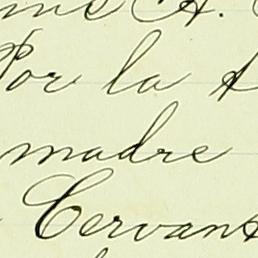 A.
Por la
madre
Cervant